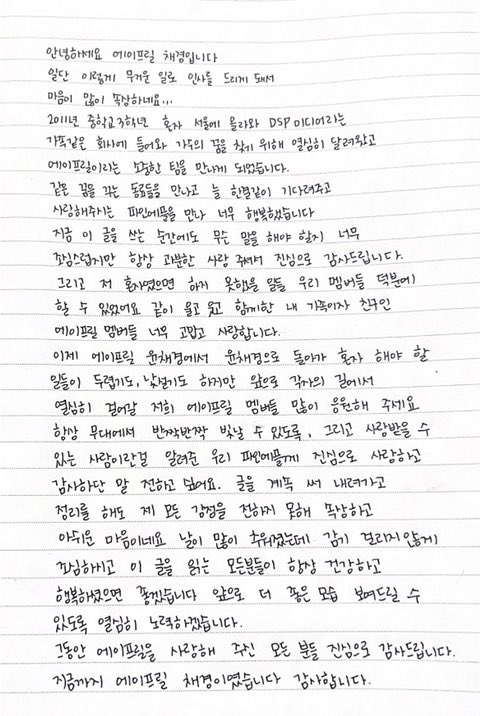 안녕하세요 에이프릴 채경입니다
일단 이렇게 무거운 일로 인사를 드리게 돼서
마음이 많이 속상하네요...
2011년 중학교 3학년 혼자 서울에 올라와 DSP미디어라는
가족같은 회사에 들어와 가수의 꿈을 찾기 위해 열심히 달려왔고
에이프릴이라는 소중한 팀을 만나게 되었습니다.
같은 꿈을 꾸는 동료들을 만나고 늘 한결같이 기다려주고
사랑해주시는 파인에플을 만나 너무 행복했습니다
지금 이 글을 쓰는 순간에도 무슨 말을 해야 할지 너무
조심스럽지만 항상 과분한 사랑 주셔서 진심으로 감사드립니다.
그리고 저 혼자였으면 하지 못했을 일들 우리 멤버들 덕분에
할 수 있었어요 같이 울고 웃고 함께한 내 가족이자 친구인
에이프릴 멤버들 너무 고맙고 사랑합니다.
이제 에이프릴 윤채경에서 윤채경으로 돌아가 혼자 해야 할
일들이 두렵기도, 낯설기도 하지만 앞으로 각자의 길에서
열심히 걸어갈 저희 에이프릴 멤버들 많이 응원해 주세요
항상 무대에서 반짝반짝 빛날 수 있도록, 그리고 사랑받을 수
있는 사람이란걸 알려준 우리 파인에플에게 진심으로 사랑하고
감사하단 말 전하고 싶어요. 글을 계속 써 내려가고
정리를 해도 제 모든 감정을 전하지 못해 속상하고
아쉬운 마음이네요 날이 많이 추워졌는데 감기 걸리지 않게
조심하시고 이 글을 읽는 모든분들이 항상 건강하고
행복하셨으면 좋겠습니다 앞으로 더 좋은 모습 보여드릴 수
있도록 열심히 노력하겠습니다.
그동안 에이프릴을 사랑해 주신 모든 분들 진심으로 감사드립니다.
지금까지 에이프릴 채경이였습니다 감사합니다.